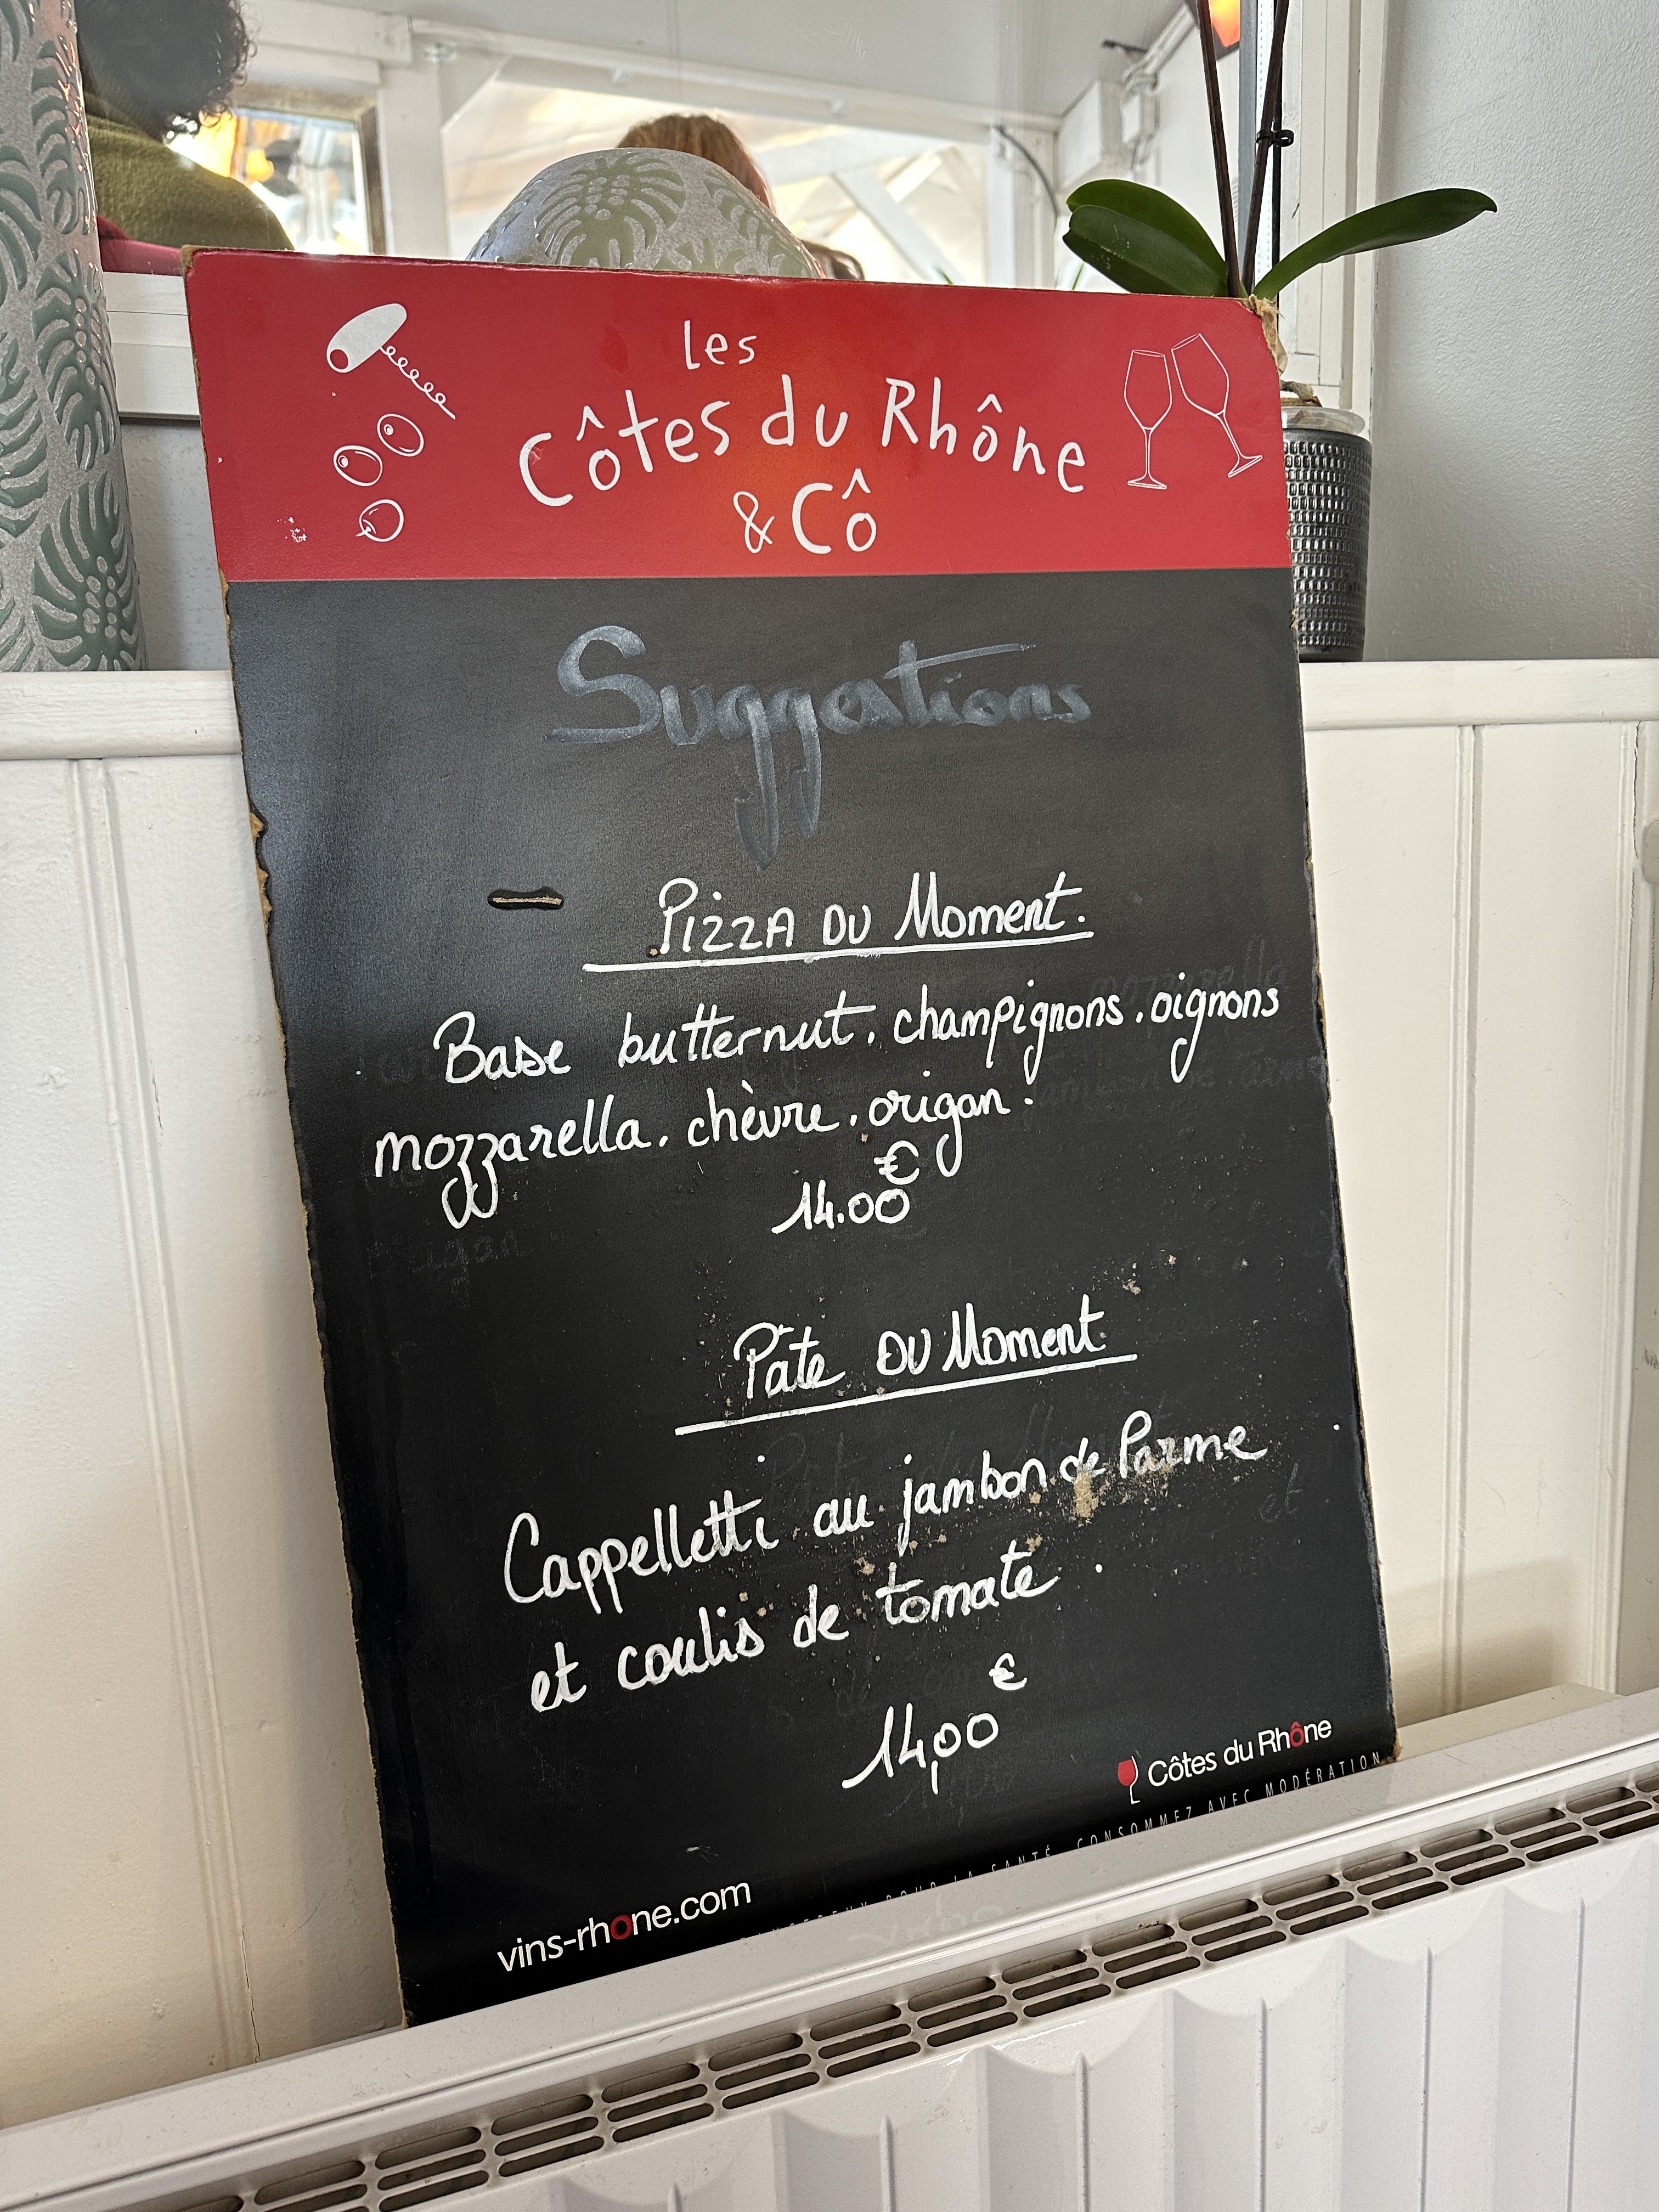 les
Côtes du Rhône
& Cô
Suggestions
Pizza du Moment.
Base butternut, champignons, oignons
mozzarella, chèvre, origan.
14.00€
Pâte du Moment
Cappelletti au jambon de Parme
et coulis de tomate.
14,00€
Côtes du Rhône
POUR LA SANTÉ. CONSOMMEZ AVEC MODÉRATION
vins-rhone.com